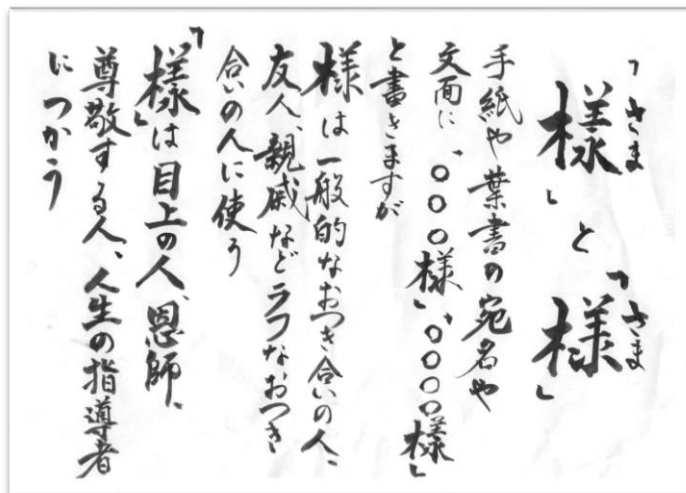 さま　さま
「樣」と「様」
手紙や葉書の宛名や
文面に「〇〇〇様」「〇〇〇〇樣」
と書きますが
様は一般的なおつき合いの人、
友人、親戚などラフなおつき
合いの人に使う
「樣」は目上の人、恩師、
尊敬する人、人生の指導者
につかう